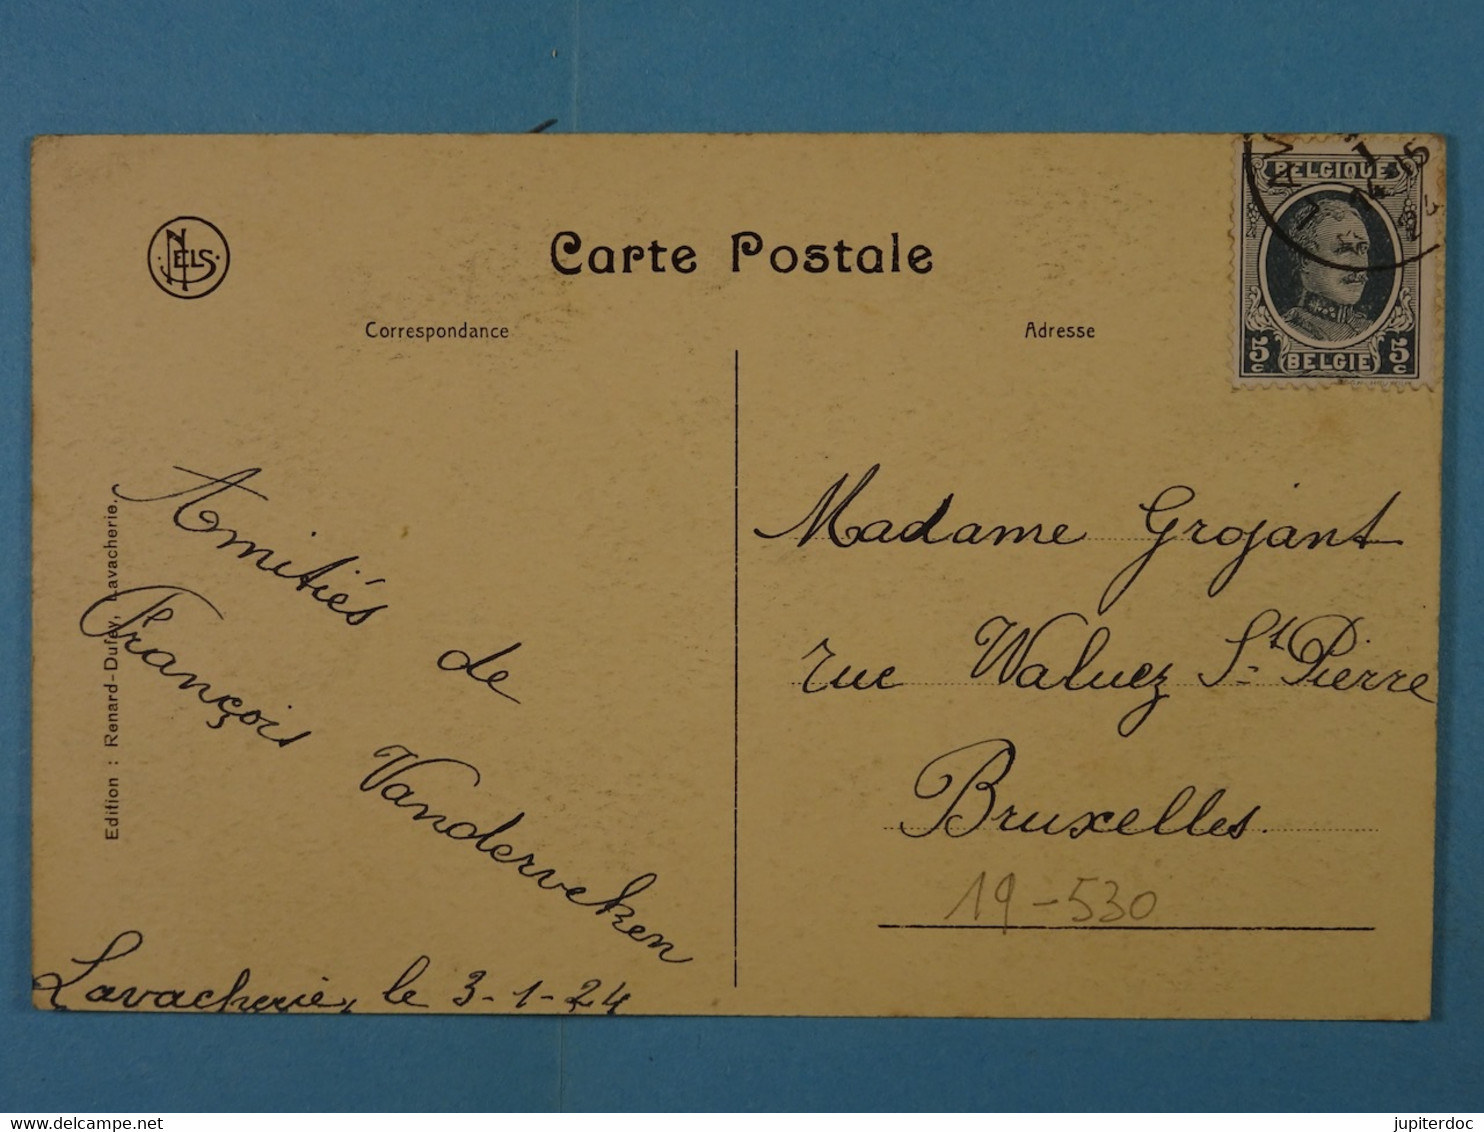 NELS
Carte Postale
Correspondance
Adresse
BELGIQUE
5c BELGIE 5c
Edition : Renard-Dufey, Lavacherie.
Amitiés de
François Vanderveken
Lavacherie, le 3-1-24
Madame Grojant
rue Waluez St Pierre
Bruxelles.
19-530
delcampe.net
jupiterdoc